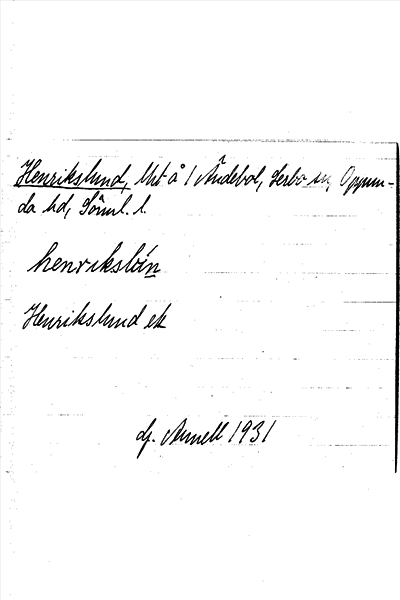 Henrikslund, lht å 1 Ändebol, Lerbo sn, Oppun-
da hd, Söml. l.
henrikslún
Henrikslund ek
dj. Arnell 1931